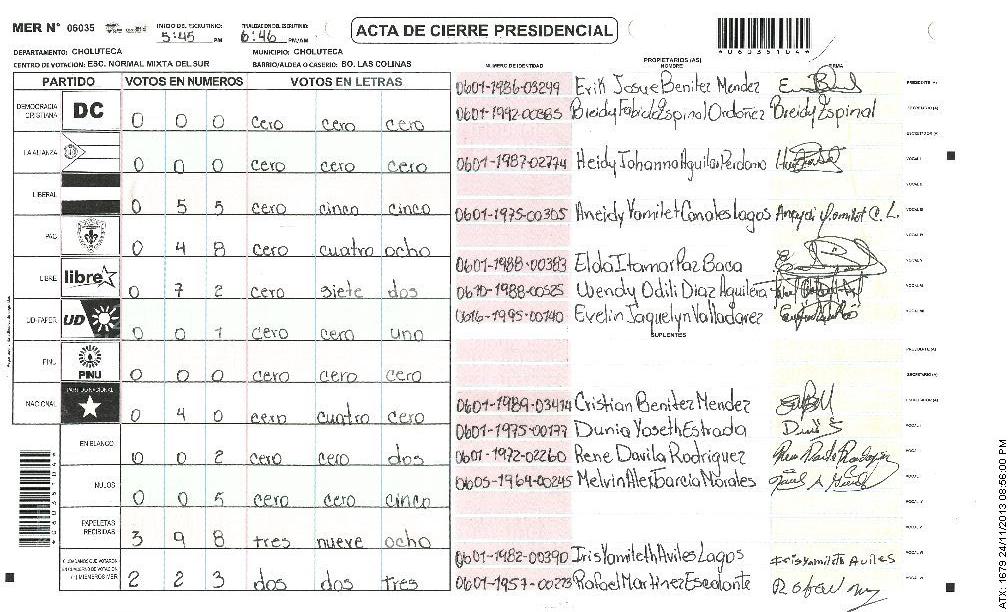 MER N° 06035
INICIO DEL ESCRUTINIO: 5:45 PM
FINALIZACION DEL ESCRUTINIO: 6:46 PM/AM
ACTA DE CIERRE PRESIDENCIAL
*06035104*
DEPARTAMENTO: CHOLUTECA MUNICIPIO: CHOLUTECA
CENTRO DE VOTACION: ESC. NORMAL MIXTA DEL SUR BARRIO/ALDEA O CASERIO: BO. LAS COLINAS
PARTIDO VOTOS EN NUMEROS VOTOS EN LETRAS
DEMOCRACIA CRISTIANA DC 0 0 0 cero cero cero
LA ALIANZA 0 0 0 cero cero cero
LIBERAL 0 5 5 cero cinco cinco
PAC 0 4 8 cero cuatro ocho
LIBRE libre 0 7 2 cero siete dos
UD-FAPER UD 0 0 1 cero cero uno
PINU PINU 0 0 0 cero cero cero
NACIONAL PARTIDO NACIONAL 0 4 0 cero cuatro cero
EN BLANCO 0 0 2 cero cero dos
NULOS 0 0 5 cero cero cinco
PAPELETAS RECIBIDAS 3 9 8 tres nueve ocho
CIUDADANOS QUE VOTARON 2 2 3 dos dos tres
NUMERO DE IDENTIDAD PROPIETARIOS (AS) NOMBRE FIRMA
0601-1986-03299 Erik Josue Benitez Mendez PRESIDENTE (A)
0601-1992-00365 Breidy Fabiola Espinal Ordoñez Breidy Espinal SECRETARIO (A)
ESCRUTADOR (A)
0601-1987-02774 Heidy Johanna Aguilar Perdomo VOCAL I
VOCAL II
0601-1975-00305 Aneidy Yamilet Canales Lagos VOCAL III
VOCAL IV
0601-1988-00383 Elda Itamar Paz Baca VOCAL V
0610-1988-00525 Wendy Odili Diaz Aguilera VOCAL VI
0616-1995-00140 Evelin Jaquelyn Valladarez VOCAL VII
SUPLENTES
PRESIDENTE (A)
SECRETARIO (A)
0601-1989-03414 Cristian Benitez Mendez ESCRUTADOR (A)
0601-1975-00177 Dunia Yoseth Estrada VOCAL I
0601-1972-02260 Rene Davila Rodriguez
0605-1964-00245 Melvin Alex Garcia Morales
0601-1982-00390 Iris Yamileth Aviles Lagos Iris Yamileth Aviles
0601-1957-00273 Rafael Martinez Escalante
ATX: 1679 24/11/2013 08:56:00 PM